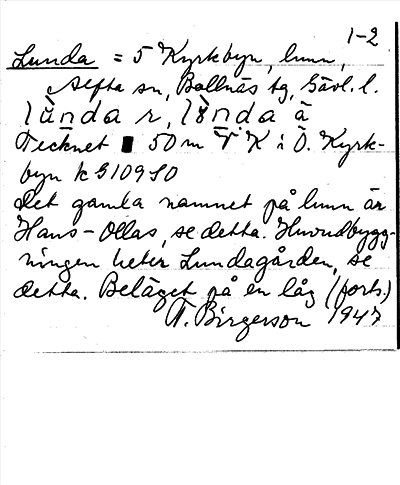 1-2
Lunda = 5 Kyrkbyn, hmn,
Alfta sn, Bollnäs tg, Gävl. l.
Tecknet ▮ 50 m V K i Ö. Kyrk-
byn k G10950
Det gamla namnet på hmn är
Hans-Ollas, se detta. Huvudbygg-
ningen heter Lundagården, se
detta. Beläget på en låg (forts.)
T. Birgerson 1947